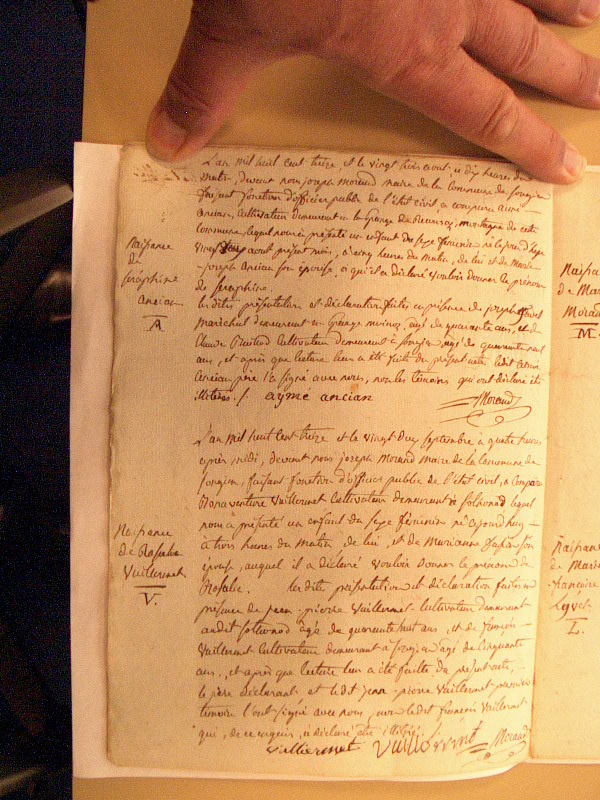 L'an mil huit cent treize, et le vingt trois aout, à dix heures du
matin, devant nous joseph Morand maire de la Commune de
faisant fonction d'officier public de l'état civil, a comparu aimé
ancian, Cultivateur demeurant a la Grange montagne de cette
Commune, lequel nous a présenté un enfant du sexe féminin né le jour d'hyer
vingt deux aout présent mois, à cinq heures du matin, de lui et de Marie
joseph Ancian son épouse, et à qui il a déclaré vouloir donner le prénom
de Seraphine.
lesdites présentation et déclaration faites en présence de joseph
Maréchal demeurant en Grange agé de quarante ans, et de
Claude Cultivateur demeurant à agé de quarante neuf
ans, et après que lecture leur a été faite du présent acte ledit
ancian père l'a signé avec nous, non les témoins qui ont déclaré être
illétérés. / ayme ancian
Morand
Naissance
de
Séraphine
Ancian
A.
L'an mil huit cent treize et le vingt deux septembre à quatre heures
après midi, devant nous joseph Morand Maire de la Commune de
faisant fonction d'officier public de l'état civil, a comparu
Bonaventure Vuillermet Cultivateur demeurant à lequel
nous a présenté un enfant du sexe féminin né ajourdhuy
à trois heures du matin de lui, et de Marianne son
épouse, auquel il a déclaré vouloir donner le prenom de
Rosalie. lesdite présentation et déclaration faites en
présence de jean-pierre Vuillermet Cultivateur demeurant
audit agé de quarante huit ans, et de françois
Vuillermet Cultivateur demeurant à agé de cinquante
ans, et après que lecture leur a été faite du présent acte,
le père déclarant et ledit jean-pierre Vuillermet premier
temoin l'ont signé avec nous, non ledit françois Vuillermet
qui, de ce requis, a déclaré être illétéré. /
Vuillermet Morand
Naissance
de Rosalie
Vuillermet
V.
Naissance
de Marie
Morand
M.
Naissance
de Marie
francoise
L.